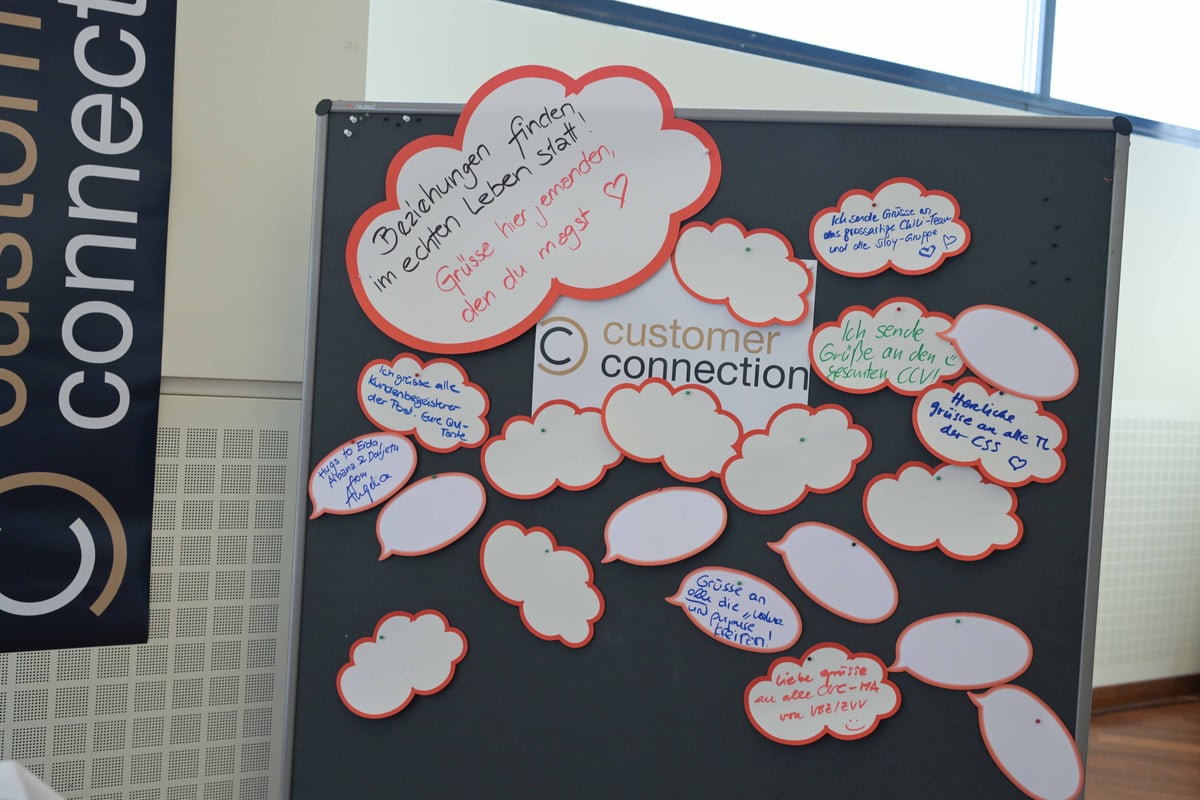 customer
connect
Beziehungen finden
im echten Leben statt!
Grüsse hier jemanden,
den du magst ♡
customer
connection
Ich sende Grüsse an
das grossartige Chili-Team
und die Siloy-Gruppe
Ich sende
Grüße an den
gesamten CCV!
Herzliche
grüsse an alle TL
der CSS ♡
Ich grüsse alle
Kundenbegeisterer
der Post. Eure Qu-
Tante
Hugs to Erda,
Albana & Donjeta
from
Angelica
Grüsse an
alle die „value
und purpose
treiben!
Liebe grüsse
an alle CVC-MA
von VBZ/ZVV